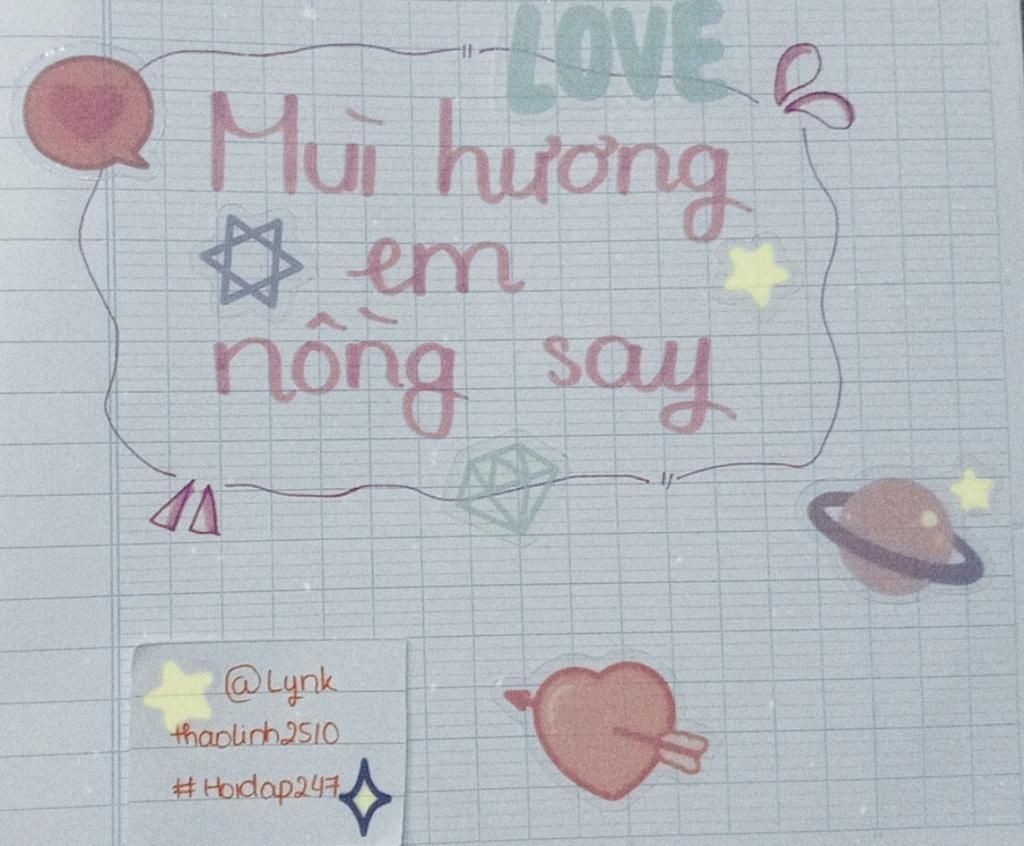 LOVE
Mùi hương
em
nồng say
@Lynk
thaolinh2510
#Hoidap247